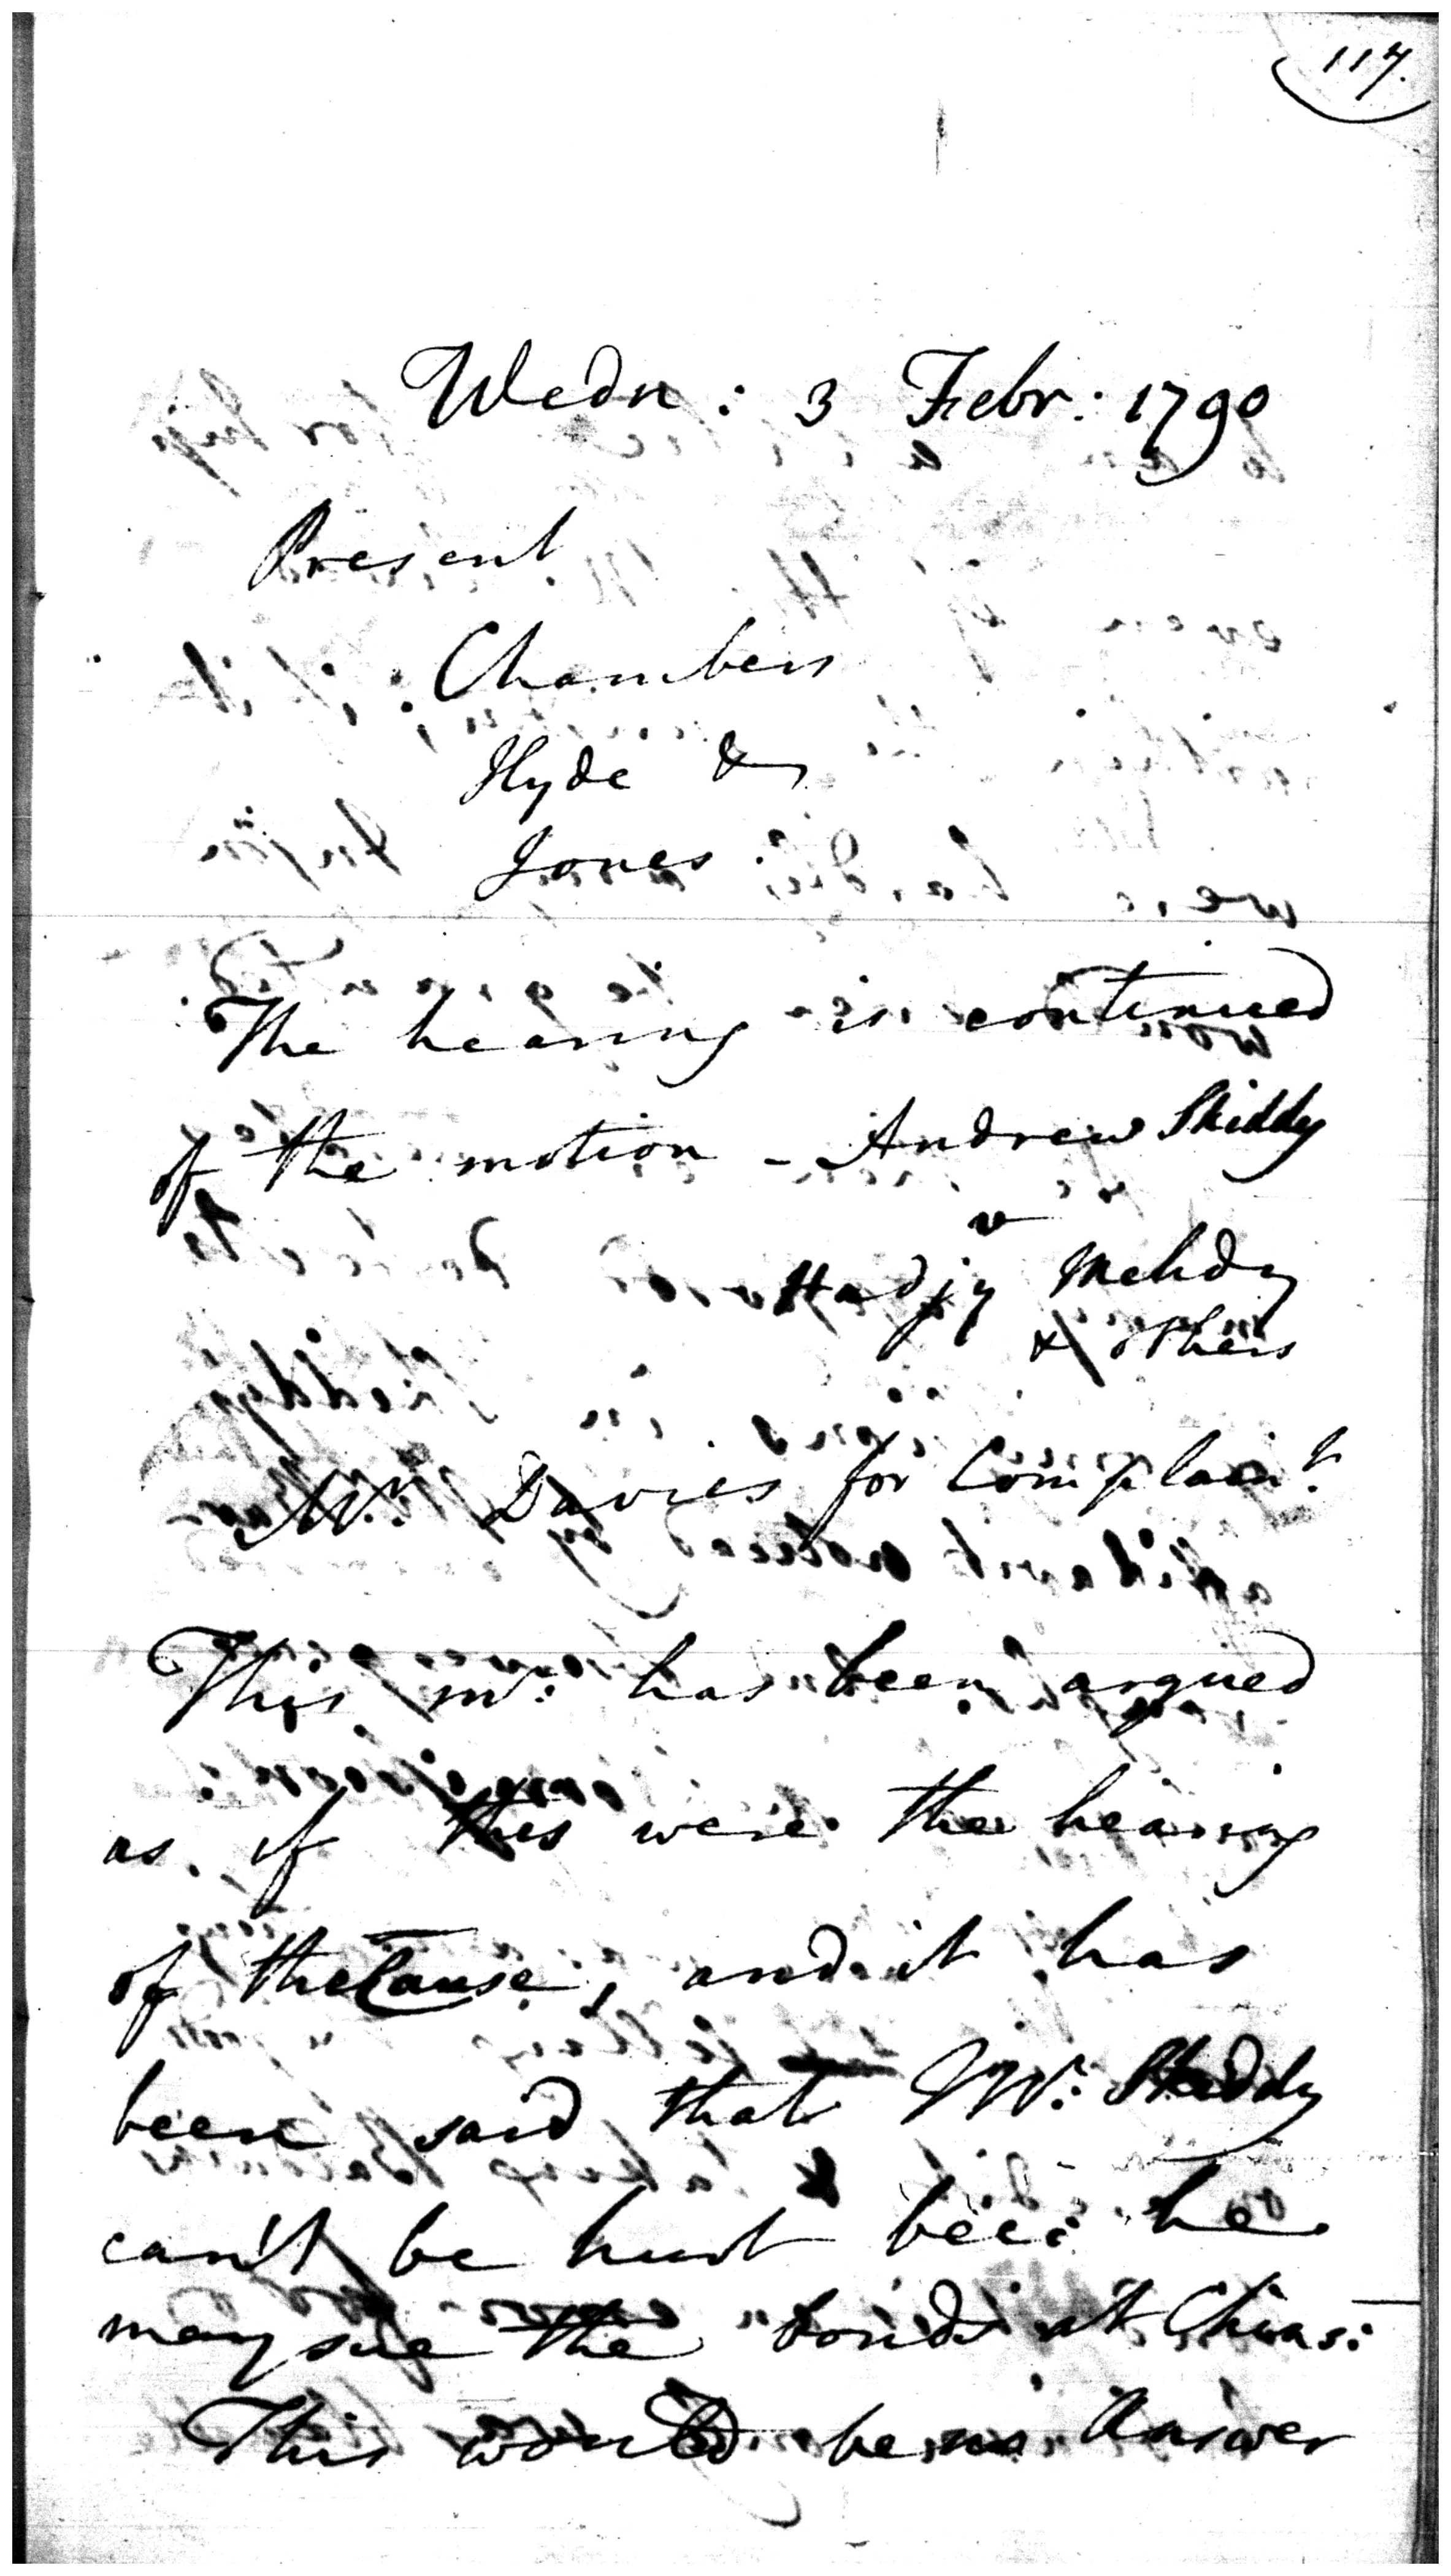 117.
Wedn: 3 Febr: 1790
Present
Chambers
Hyde &
Jones.
The hearing is continued
of the motion - Andrew Skiddy
v
Hadjy Mehdy
& others
Mr. Davies for Complaint.
This mo: has been argued
as if this were the hearing
of the Cause, and it has
been said that Mr. Skiddy
can't be hurt bec: he
may sue the bonds at
This would be no Answer